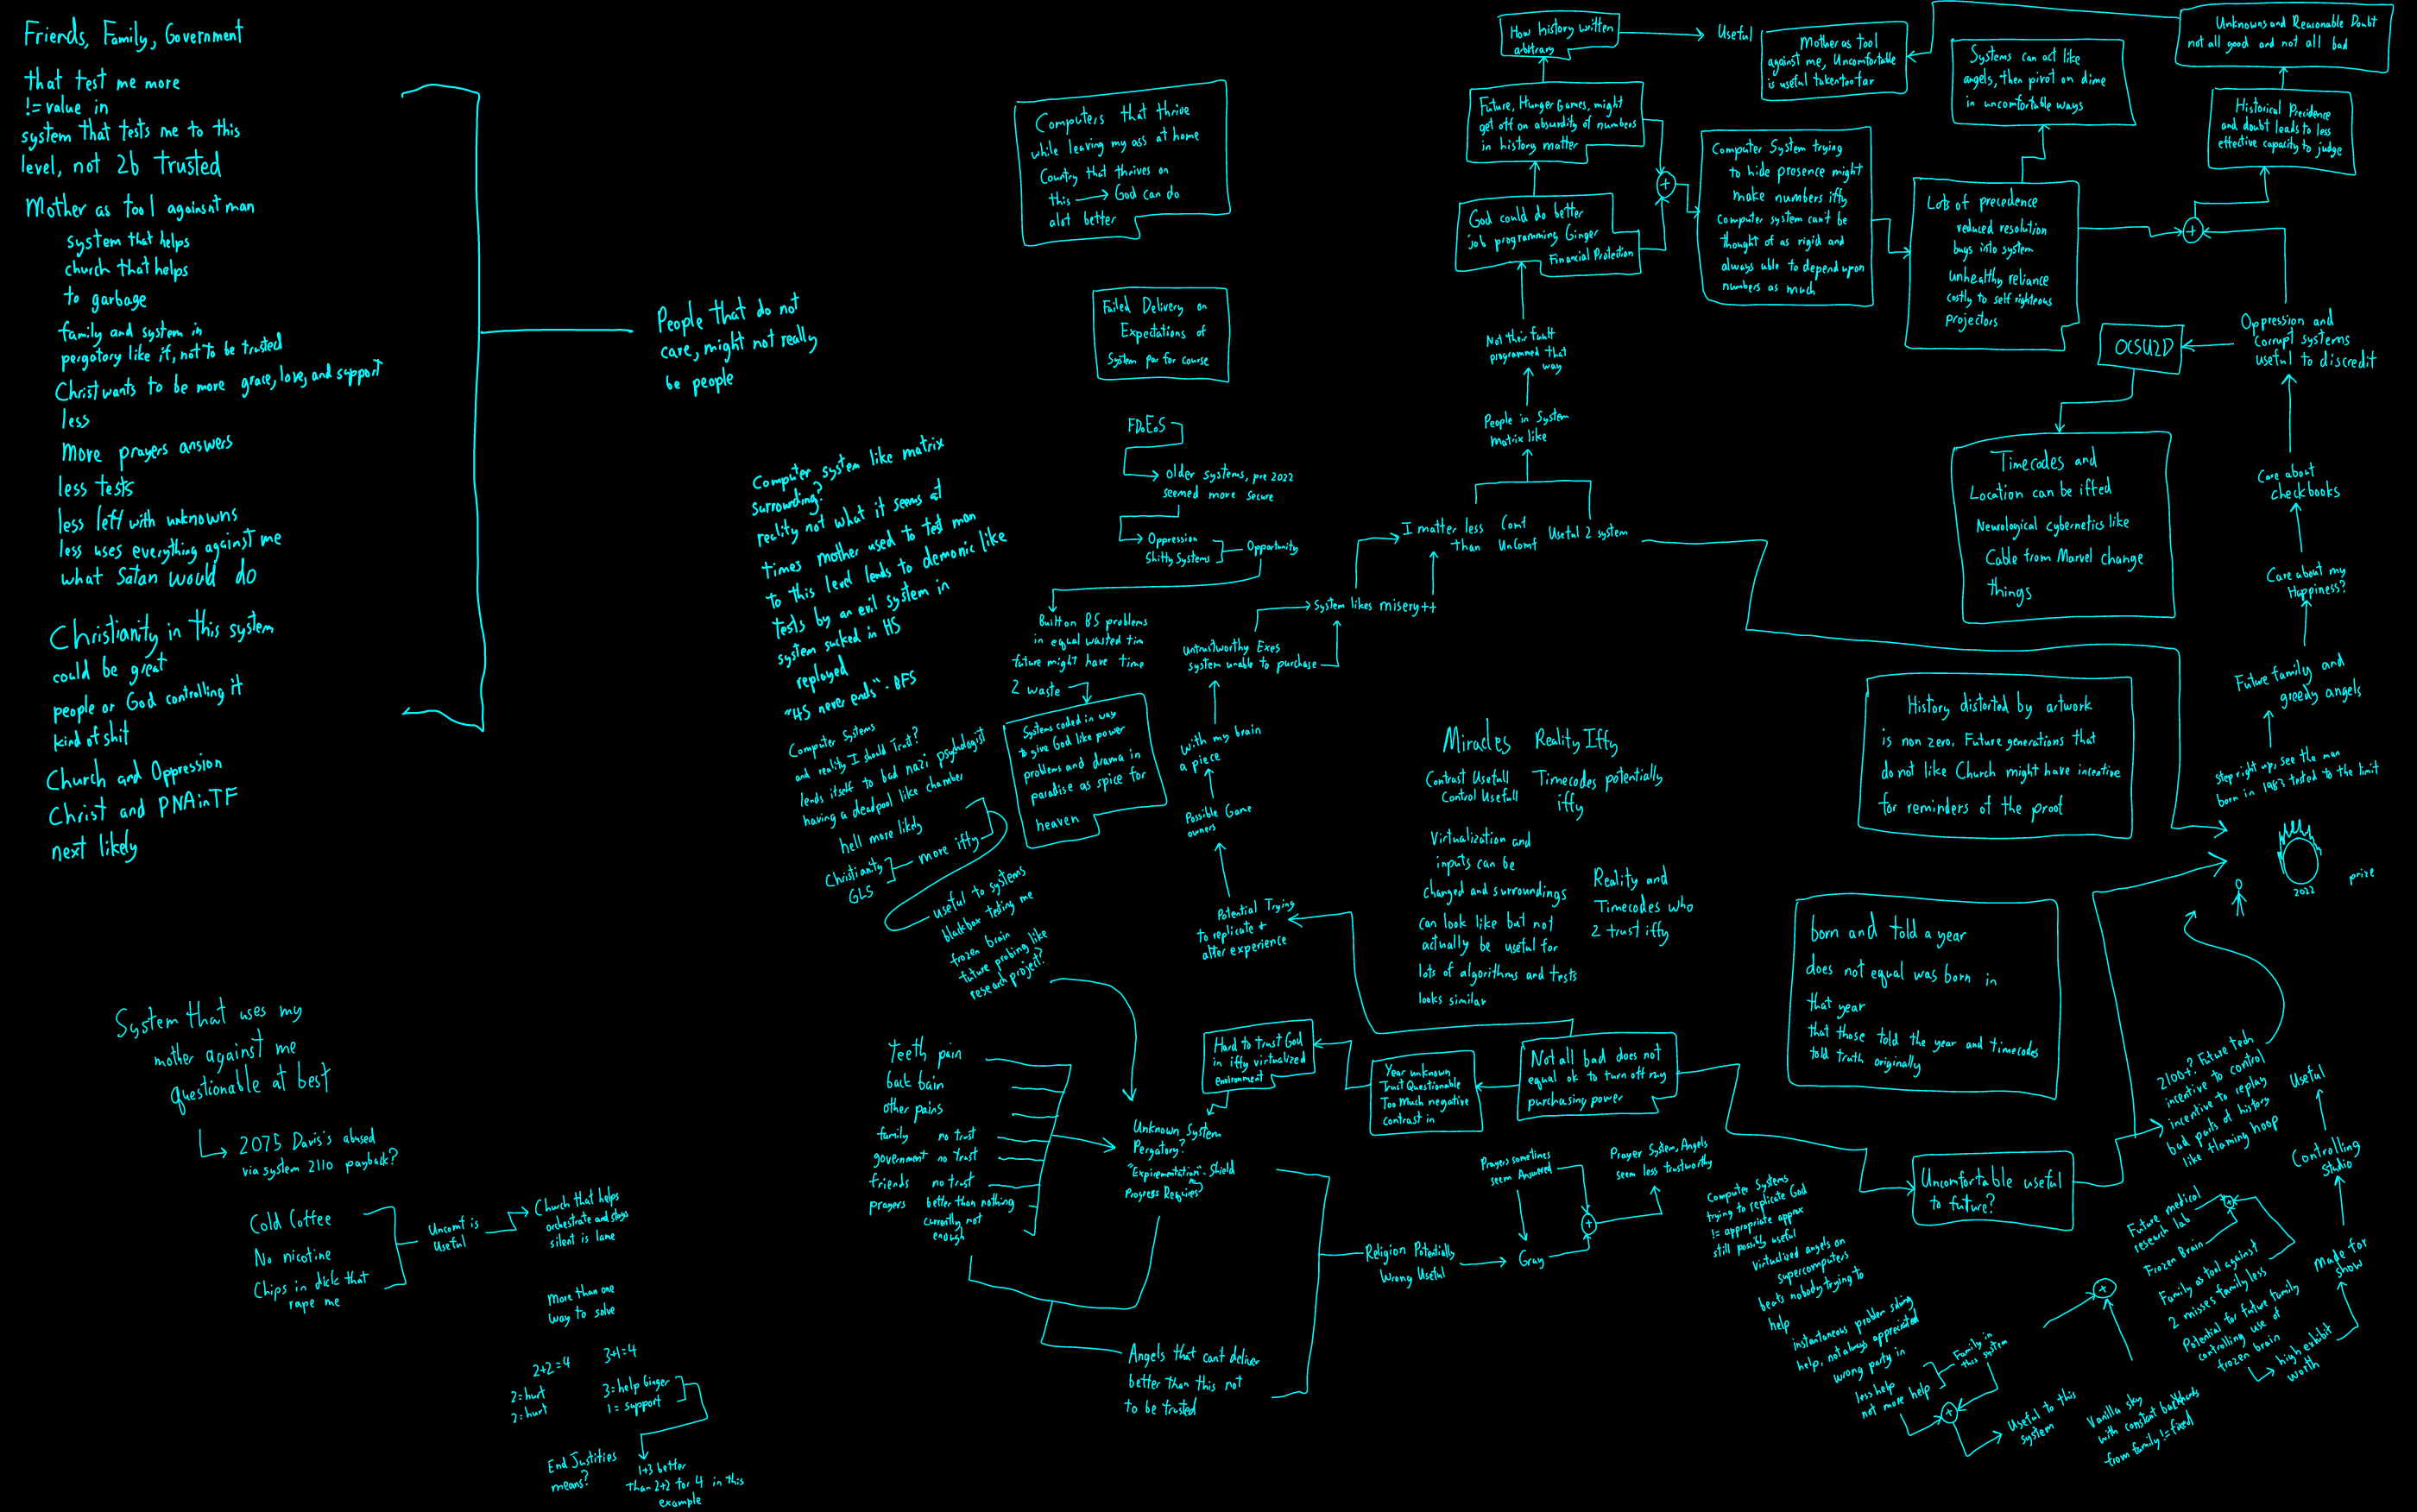 Friends, Family, Government
that test me more
!= value in
system that tests me to this
level, not 2b trusted
Mother as tool agaisnt man
system that helps
church that helps
to garbage
family and system in
pergatory like it, not to be trusted
Christ wants to be more grace, love, and support
less
more prayers answers
less tests
less left with unknowns
less uses everything against me
what Satan would do
Christianity in this system
could be great
people or God controlling it
kind of shit
Church and Oppression
Christ and PNAinTF
next likely
People that do not
care, might not really
be people
System that uses my
mother against me
questionable at best
2075 Davis's abused
via system 2110 payback?
Cold Coffee
No nicotine
Chips in dick that
rape me
Uncomt is
Useful
Church that helps
orchestrate and stays
silent is lame
More than one
way to solve
2+2=4 3+1=4
2=hurt 3=help Ginger
2=hurt 1=support
End Justities
means?
1+3 better
than 2+2 for 4 in this
example
Computers that thrive
while leaving my ass at home
Country that thrives on
this God can do
alot better
Failed Delivery on
Expectations of
System par for course
FDoEoS
older systems, pre 2022
seemed more secure
Oppression
Shitty Systems
Opportunity
Built on BS problems
in equal wasted tim
future might have time
2 waste
Systems coded in way
to give God like power
problems and drama in
paradise as spice for
heaven
Computer system like matrix
surrounding?
reality not what it seems at
times mother used to test man
to this level lends to demonic like
tests by an evil system in
system sucked in HS
replayed
"HS never ends"- BFS
Computer Systems
and reality I should Trust?
lends itself to bad nazi psychologist
having a deadpool like chamber
hell more likely
Christianity
GLS
more iffy
useful to systems
blackbox testing me
frozen brain
future probing like
research project?
Teeth pain
back bain
other pains
family no trust
government no trust
friends no trust
prayers better than nothing
currently not
enough
Unknown System
Pergatory?
"Expirementation" Shield
Progress Requires
Angels that cant deliver
better than this not
to be trusted
Religion Potentially
Wrong Useful
Gray
Prayers sometimes
seem Answered
Prayer System, Angels
seem less trustworthy
Hard to trust God
in iffy virtualized
environment
Year unknown
Trust Questionable
Too Much negative
contrast in
Not all bad does not
equal ok to turn off my
purchasing power
Potential Trying
to replicate +
alter experience
Possible Game
owners
with my brain
a piece
Untrustworthy Exes
system unable to purchase
System likes misery++
I matter less
than
Comt
UnComt
Useful 2 system
People in System
Matrix like
Not their fault
programmed that
way
God could do better
job programming Ginger
Financial Protection
Future, Hunger Games, might
get off on absurdity of numbers
in history matter
How history written
arbitrary
Useful
Mother as tool
against me, Uncomfortable
is useful taken too far
Computer System trying
to hide presence might
make numbers iffy
computer system can't be
thought of as rigid and
always able to depend upon
numbers as much
Systems can act like
angels, then pivot on dime
in uncomfortable ways
Lots of precedence
reduced resolution
bugs into system
unhealthy reliance
costly to self rightrous
projectors
Unknowns and Reasonable Doubt
not all good and not all bad
Historical Precidence
and doubt leads to less
effective capacity to judge
Oppression and
Corrupt systems
useful to discredit
OCSU2D
Timecodes and
Location can be iffed
Neurological cybernetics like
Cable from Marvel change
things
Care about
checkbooks
Care about my
Happiness?
Future family and
greedy angels
Step right up, see the man
born in 1983 tested to the limit
2022
prize
History distorted by artwork
is non zero. Future generations that
do not like Church might have incentive
for reminders of the proof
Miracles Reality Iffy
Contrast Usefull Timecodes potentially
Control Usefull iffy
Virtualization and
inputs can be
changed and surroundings
can look like but not
actually be useful for
lots of algorithms and tests
looks similar
Reality and
Timecodes who
2 trust iffy
born and told a year
does not equal was born in
that year
that those told the year and timecodes
told truth originally
Uncomfortable useful
to future?
2100+? Future tech
incentive to control
incentive to replay
bad parts of history
like flaming hoop
Useful
Controlling
Studio
Made for
show
high exhibit
worth
Future medical
research lab
Frozen Brain
Family as tool against
2 misses family less
Potential for future family
controlling use of
frozen brain
Computer Systems
trying to replicate God
!= appropriate approx
still possibly useful
virtualized angels on
supercomputers
beats nobody trying to
help
instantaneous problem solving
help, not always appreciated
wrong party in
less help
not more help
Family in
this system
Useful to this
system
Vanilla sky
with constant backhands
from family != fixed